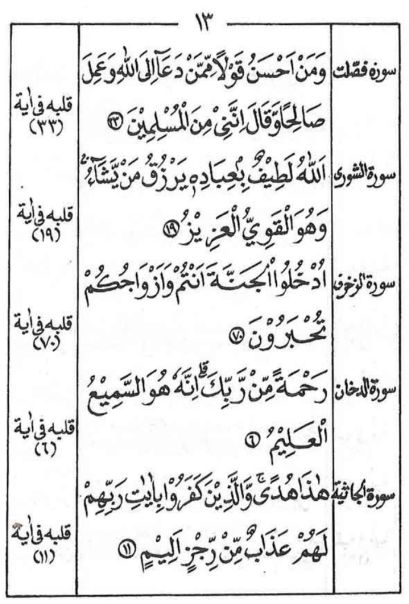 ١٣
سورة فصلت وَمَنْ اَحْسَنُ قَوْلًا مِّمَّنْ دَعَآ اِلَى اللّٰهِ وَعَمِلَ
صَالِحًا وَّقَالَ اِنَّنِيْ مِنَ الْمُسْلِمِيْنَ ٣٣ قلبه فى اٰية (٣٣)
سورة الشورى اَللّٰهُ لَطِيْفٌۢ بِعِبَادِهٖ يَرْزُقُ مَنْ يَّشَآءُ ۚ
وَهُوَ الْقَوِيُّ الْعَزِيْزُ ١٩ قلبه فى اٰية (١٩)
سورة الزخرف اُدْخُلُوا الْجَنَّةَ اَنْتُمْ وَاَزْوَاجُكُمْ
تُحْبَرُوْنَ ٧٠ قلبه فى اٰية (٧٠)
سورة الدخان رَحْمَةً مِّنْ رَّبِّكَ ۗ اِنَّهٗ هُوَ السَّمِيْعُ
الْعَلِيْمُ ٦ قلبه فى اٰية (٦)
سورة الجاثية هٰذَا هُدًى ۚ وَالَّذِيْنَ كَفَرُوْا بِاٰيٰتِ رَبِّهِمْ
لَهُمْ عَذَابٌ مِّنْ رِّجْزٍ اَلِيْمٍ ١١ قلبه فى اٰية (١١)